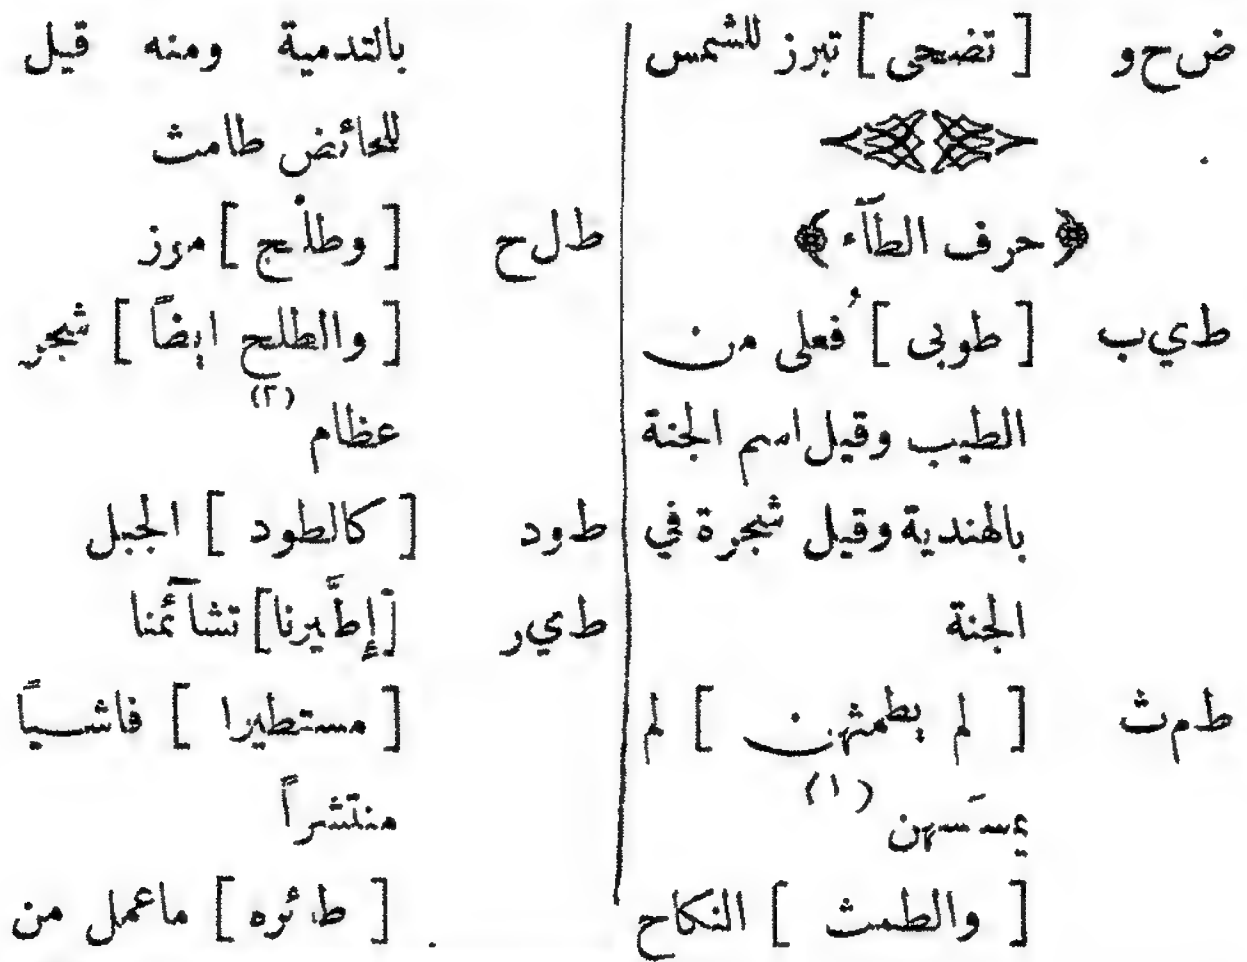 ض ح و [ تضحى ] تبرز للشمس
﴿ حرف الطآء ﴾
ط ي ب [ طوبى ] فُعلى من
الطيب وقيل اسم الجنة
بالهندية وقيل شجرة في
الجنة
ط م ث [ لم يطمثهن ] لم
يمسَسهن (١)
[ والطمث ] النكاح
بالتدمية ومنه قيل
للحائض طامث
ط ل ح [ وطلْح ] موز
[ والطلح ايضاً ] شجر
عظام (٢)
ط ود [ كالطود ] الجبل
ط ي ر [ إطَّيرنا ] تشآئمنا
[ مستطيرا ] فاشياً
منتشراً
[ طائره ] ماعمل من